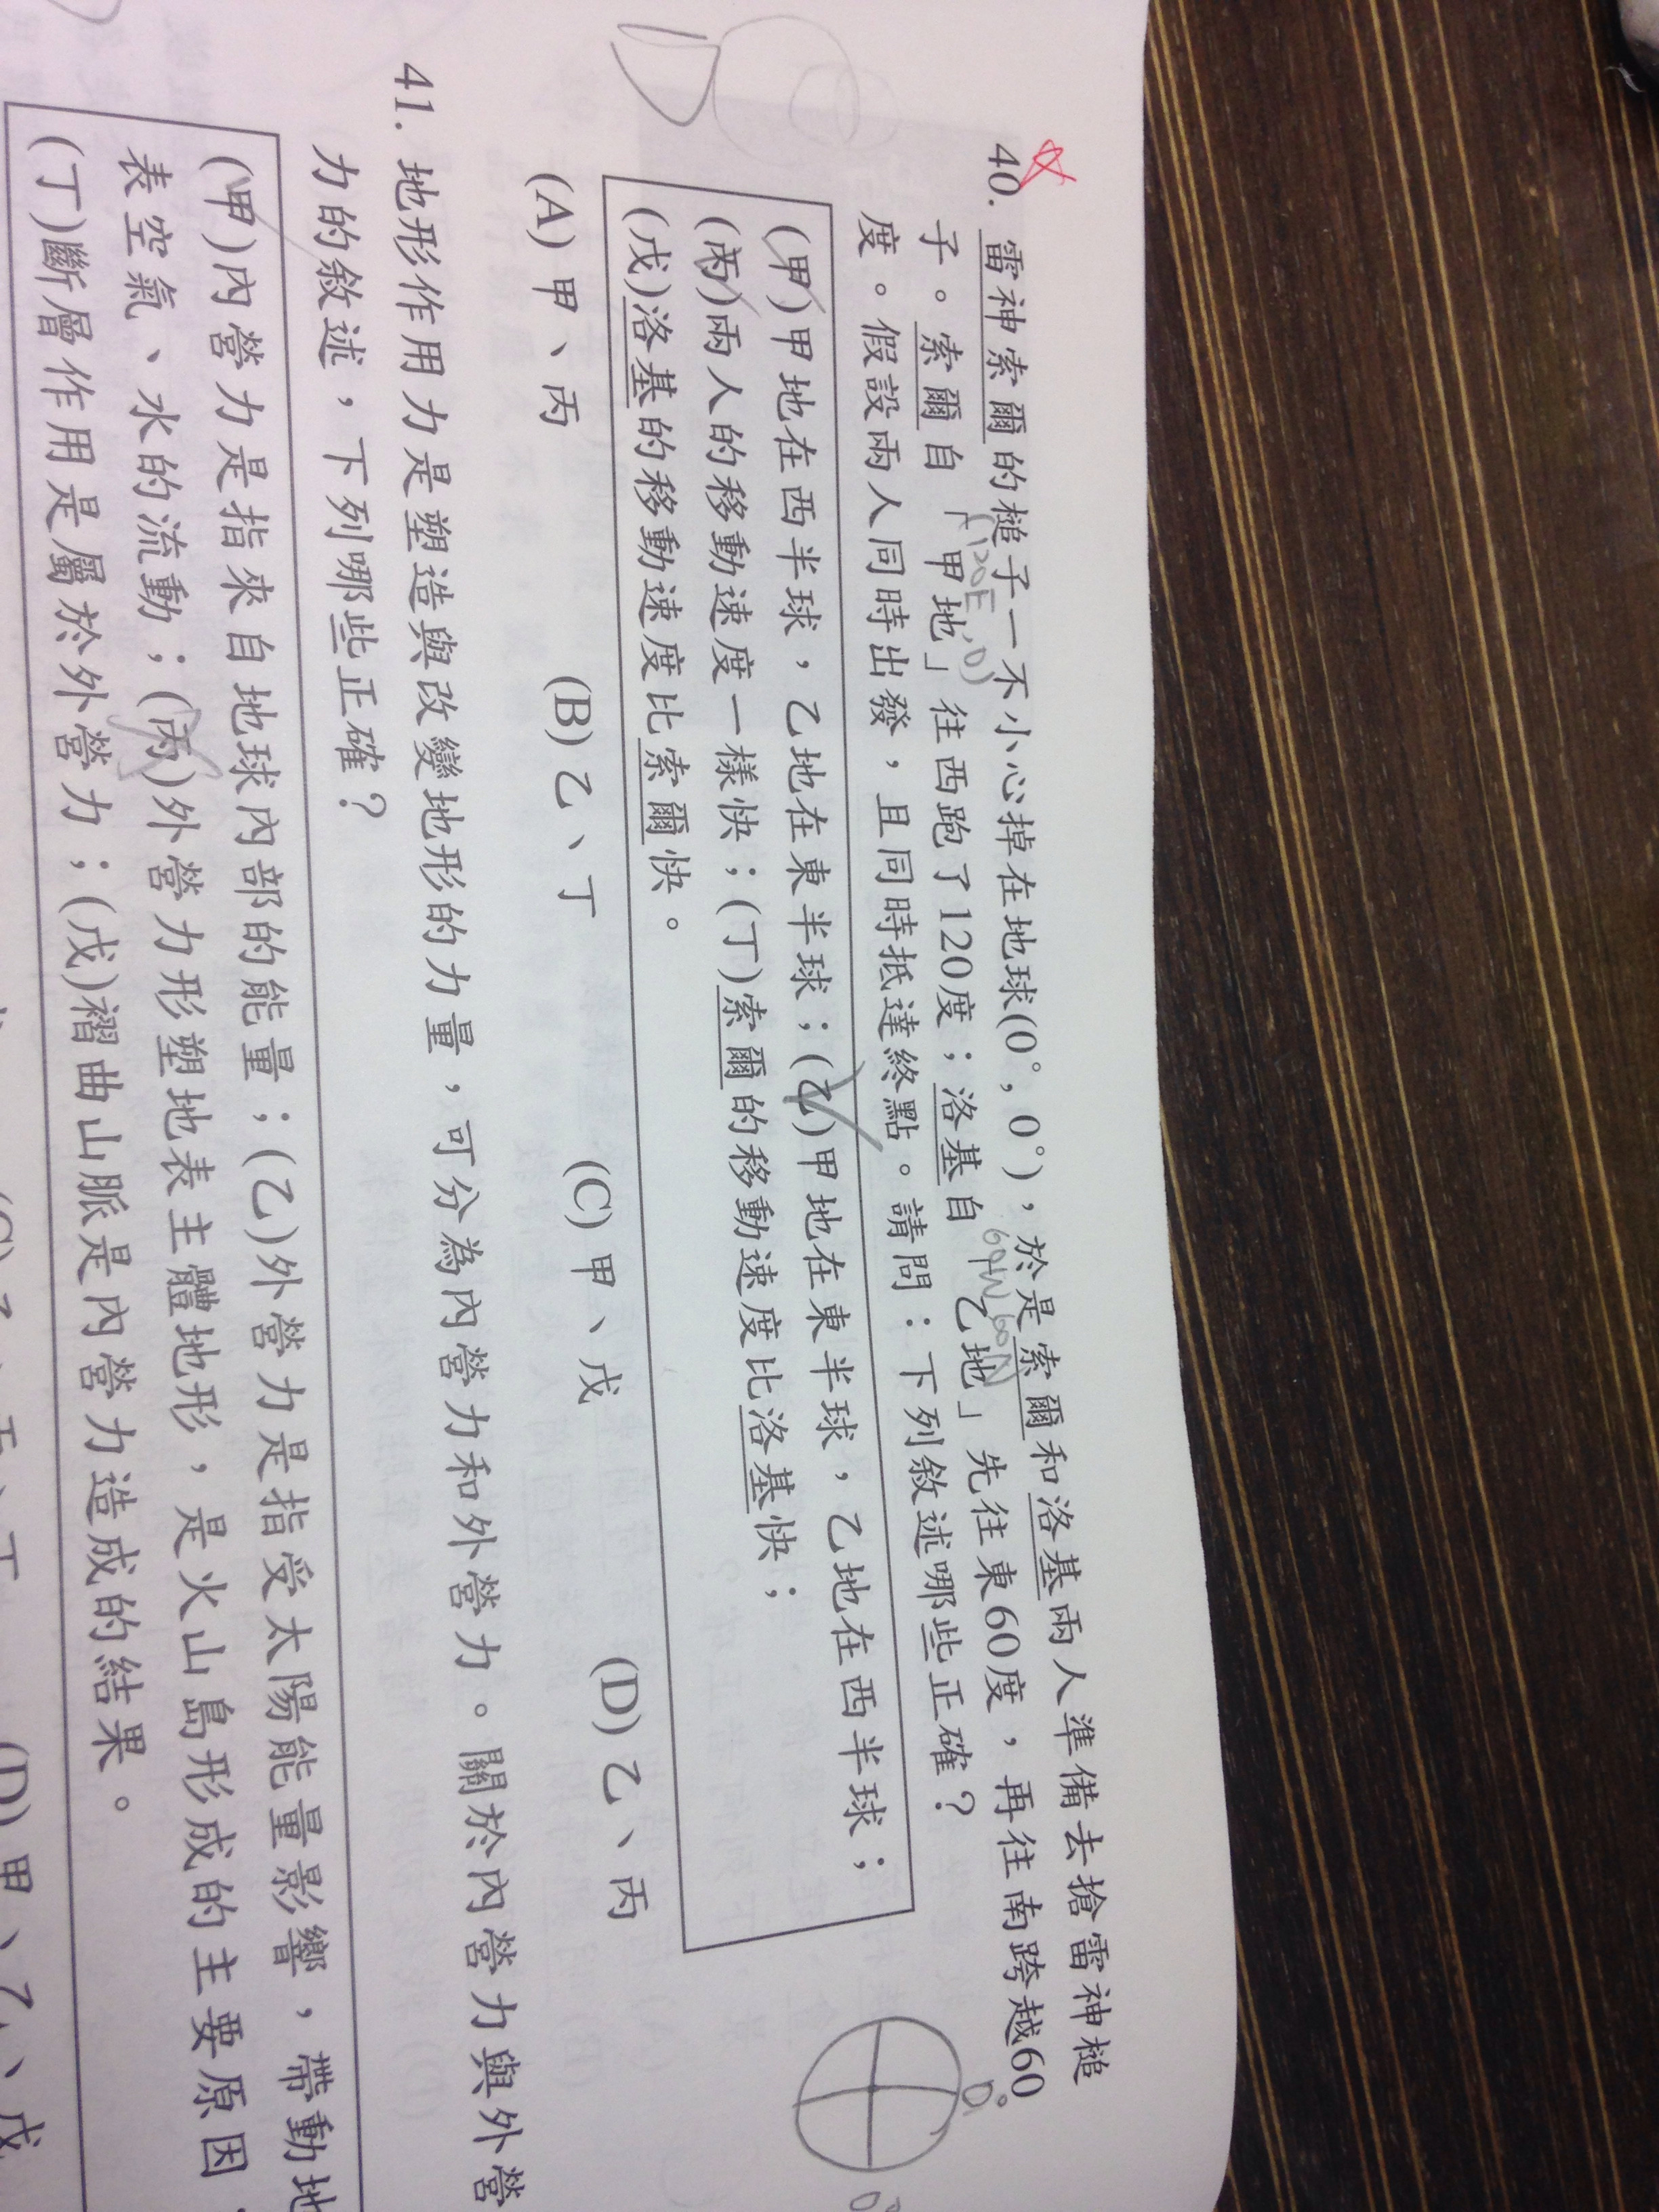 40. 雷神索爾的槌子一不小心掉在地球(0°, 0°)，於是索爾和洛基兩人準備去搶雷神槌
(120E, 0)
60W 60N
子。索爾自「甲地」往西跑了120度；洛基自「乙地」先往東60度，再往南跨越60
度。假設兩人同時出發，且同時抵達終點。請問：下列敘述哪些正確？
(甲)甲地在西半球，乙地在東半球；(乙)甲地在東半球，乙地在西半球；
(丙)兩人的移動速度一樣快；(丁)索爾的移動速度比洛基快；
(戊)洛基的移動速度比索爾快。
(A) 甲、丙 (B) 乙、丁 (C) 甲、戊 (D) 乙、丙
D
0°
41. 地形作用力是塑造與改變地形的力量，可分為內營力和外營力。關於內營力與外營
力的敘述，下列哪些正確？
(甲)內營力是指來自地球內部的能量；(乙)外營力是指受太陽能量影響，帶動地
表空氣、水的流動；(丙)外營力形塑地表主體地形，是火山島形成的主要原因
(丁)斷層作用是屬於外營力；(戊)褶曲山脈是內營力造成的結果。
(D) 甲、乙、戊